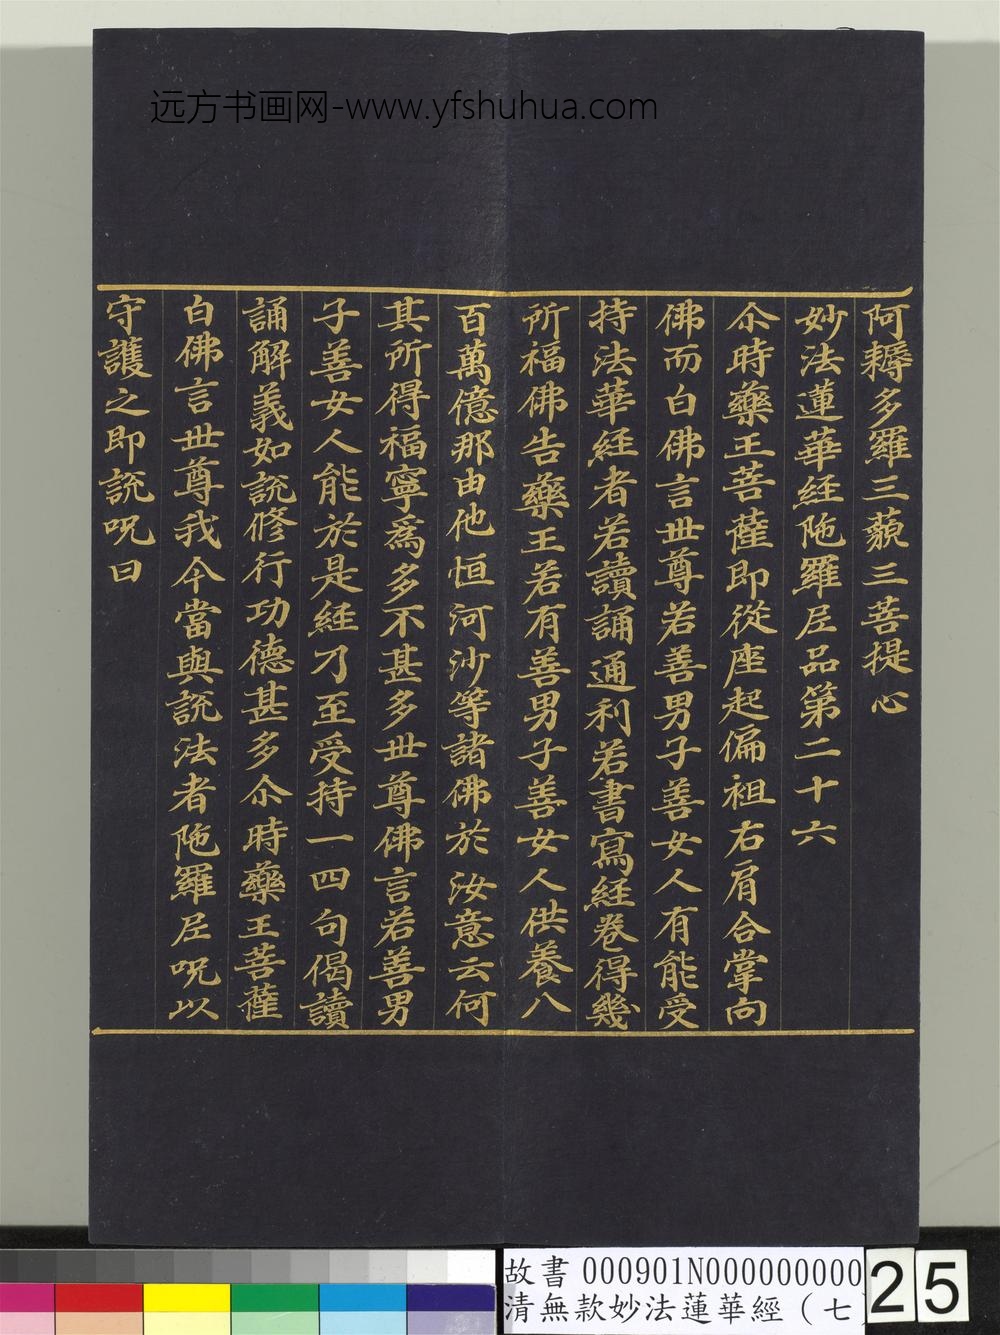 远方书画网-www.yfshuhua.com
阿耨多羅三藐三菩提心
妙法蓮華經陁羅尼品第二十六
尒時藥王菩薩即從座起偏袒右肩合掌向
佛而白佛言世尊若善男子善女人有能受
持法華經者若讀誦通利若書寫經卷得幾
所福佛告藥王若有善男子善女人供養八
百萬億那由他恒河沙等諸佛於汝意云何
其所得福寧為多不甚多世尊佛言若善男
子善女人能於是經乃至受持一四句偈讀
誦解義如說修行功德甚多尒時藥王菩薩
白佛言世尊我今當與說法者陁羅尼呪以
守護之即說呪曰
故書 000901N000000000
清無款妙法蓮華經（七）
25